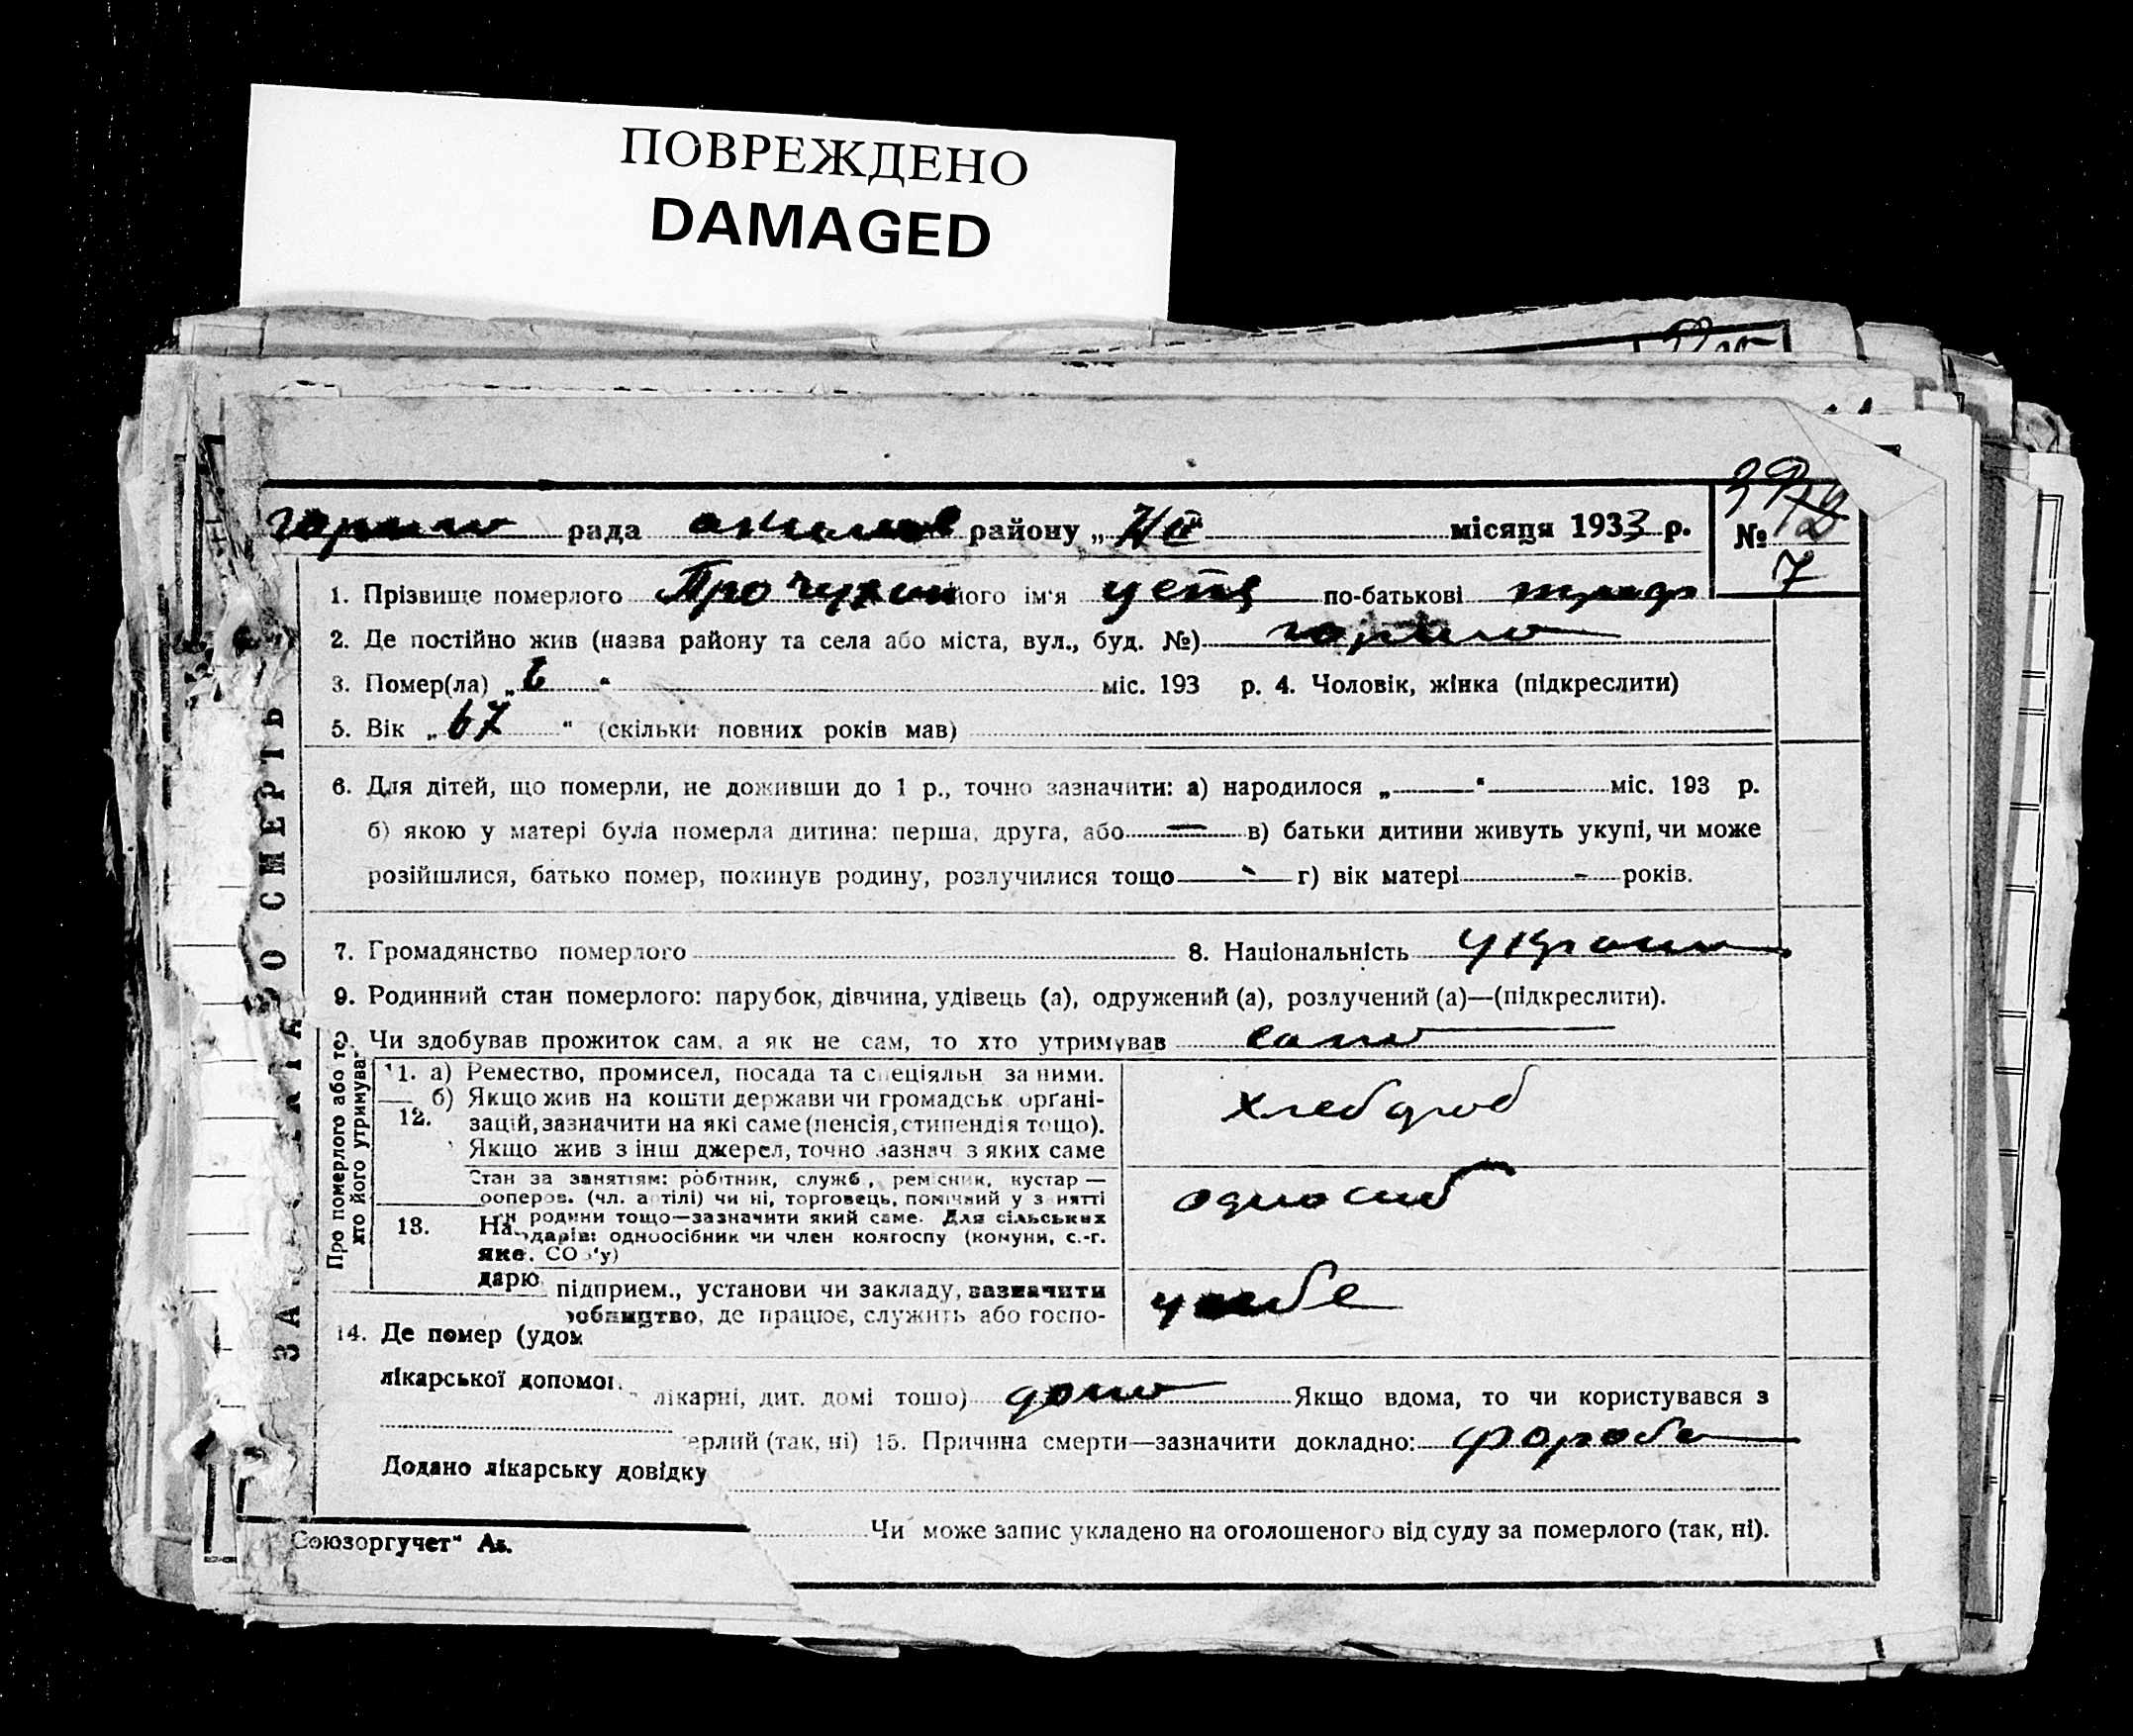 ПОВРЕЖДЕНО
DAMAGED
рада районУ „ місяця 1933 р. №
7
1. Прізвище померлого його ім'я по-батькові
2. Де постійно жив (назва району та села або міста, вул., буд. №)
3. Помер(ла) „6 “ міс. 193 р. 4. Чоловік, жінка (підкреслити)
5. Вік „67 “ (скільки повних років мав)
6. Для дітей, що померли, не доживши до 1 р., точно зазначити: а) народилося „ “ міс. 193 р.
б) якою у матері була померла дитина: перша, друга, або в) батьки дитини живуть укупі, чи може
розійшлися, батько помер, покинув родину, розлучилися тощо г) вік матері років.
7. Громадянство померлого 8. Національність
9. Родинний стан померлого: парубок, дівчина, удівець (а), одружений (а), розлучений (а)—(підкреслити).
Чи здобував прожиток сам, а як не сам, то хто утримував сам
Про померлого або того хто його утримував
11. а) Ремество, промисел, посада та спеціяльн за ними. хлебороб
б) Якщо жив на кошти держави чи громадськ органі-
12. зацій, зазначити на які саме (пенсія, стипендія тощо).
Якщо жив з інш джерел, точно зазнач з яких саме
Стан за заняттям: робітник, служб., ремісник, кустар —
кооперов. (чл. артілі) чи ні, торговець, помічний у занятті одноосиб
13. На родини тощо—зазначити який саме. Для сільських
одноосібник чи член колгоспу (комуни, с.-г.
яке СОЗ'у)
дарю підприєм., установи чи закладу, зазначити у себе
де працює, служить або госпо-
14. Де помер (удом
лікарської допомог лікарні, дит. домі тощо) дома Якщо вдома, то чи користувався з
(так, ні) 15. Причина смерти—зазначити докладно:
Додано лікарську довідку
Чи може запис укладено на оголошеного від суду за померлого (так, ні).
Союзоргучет“
О СМЕРТЬ